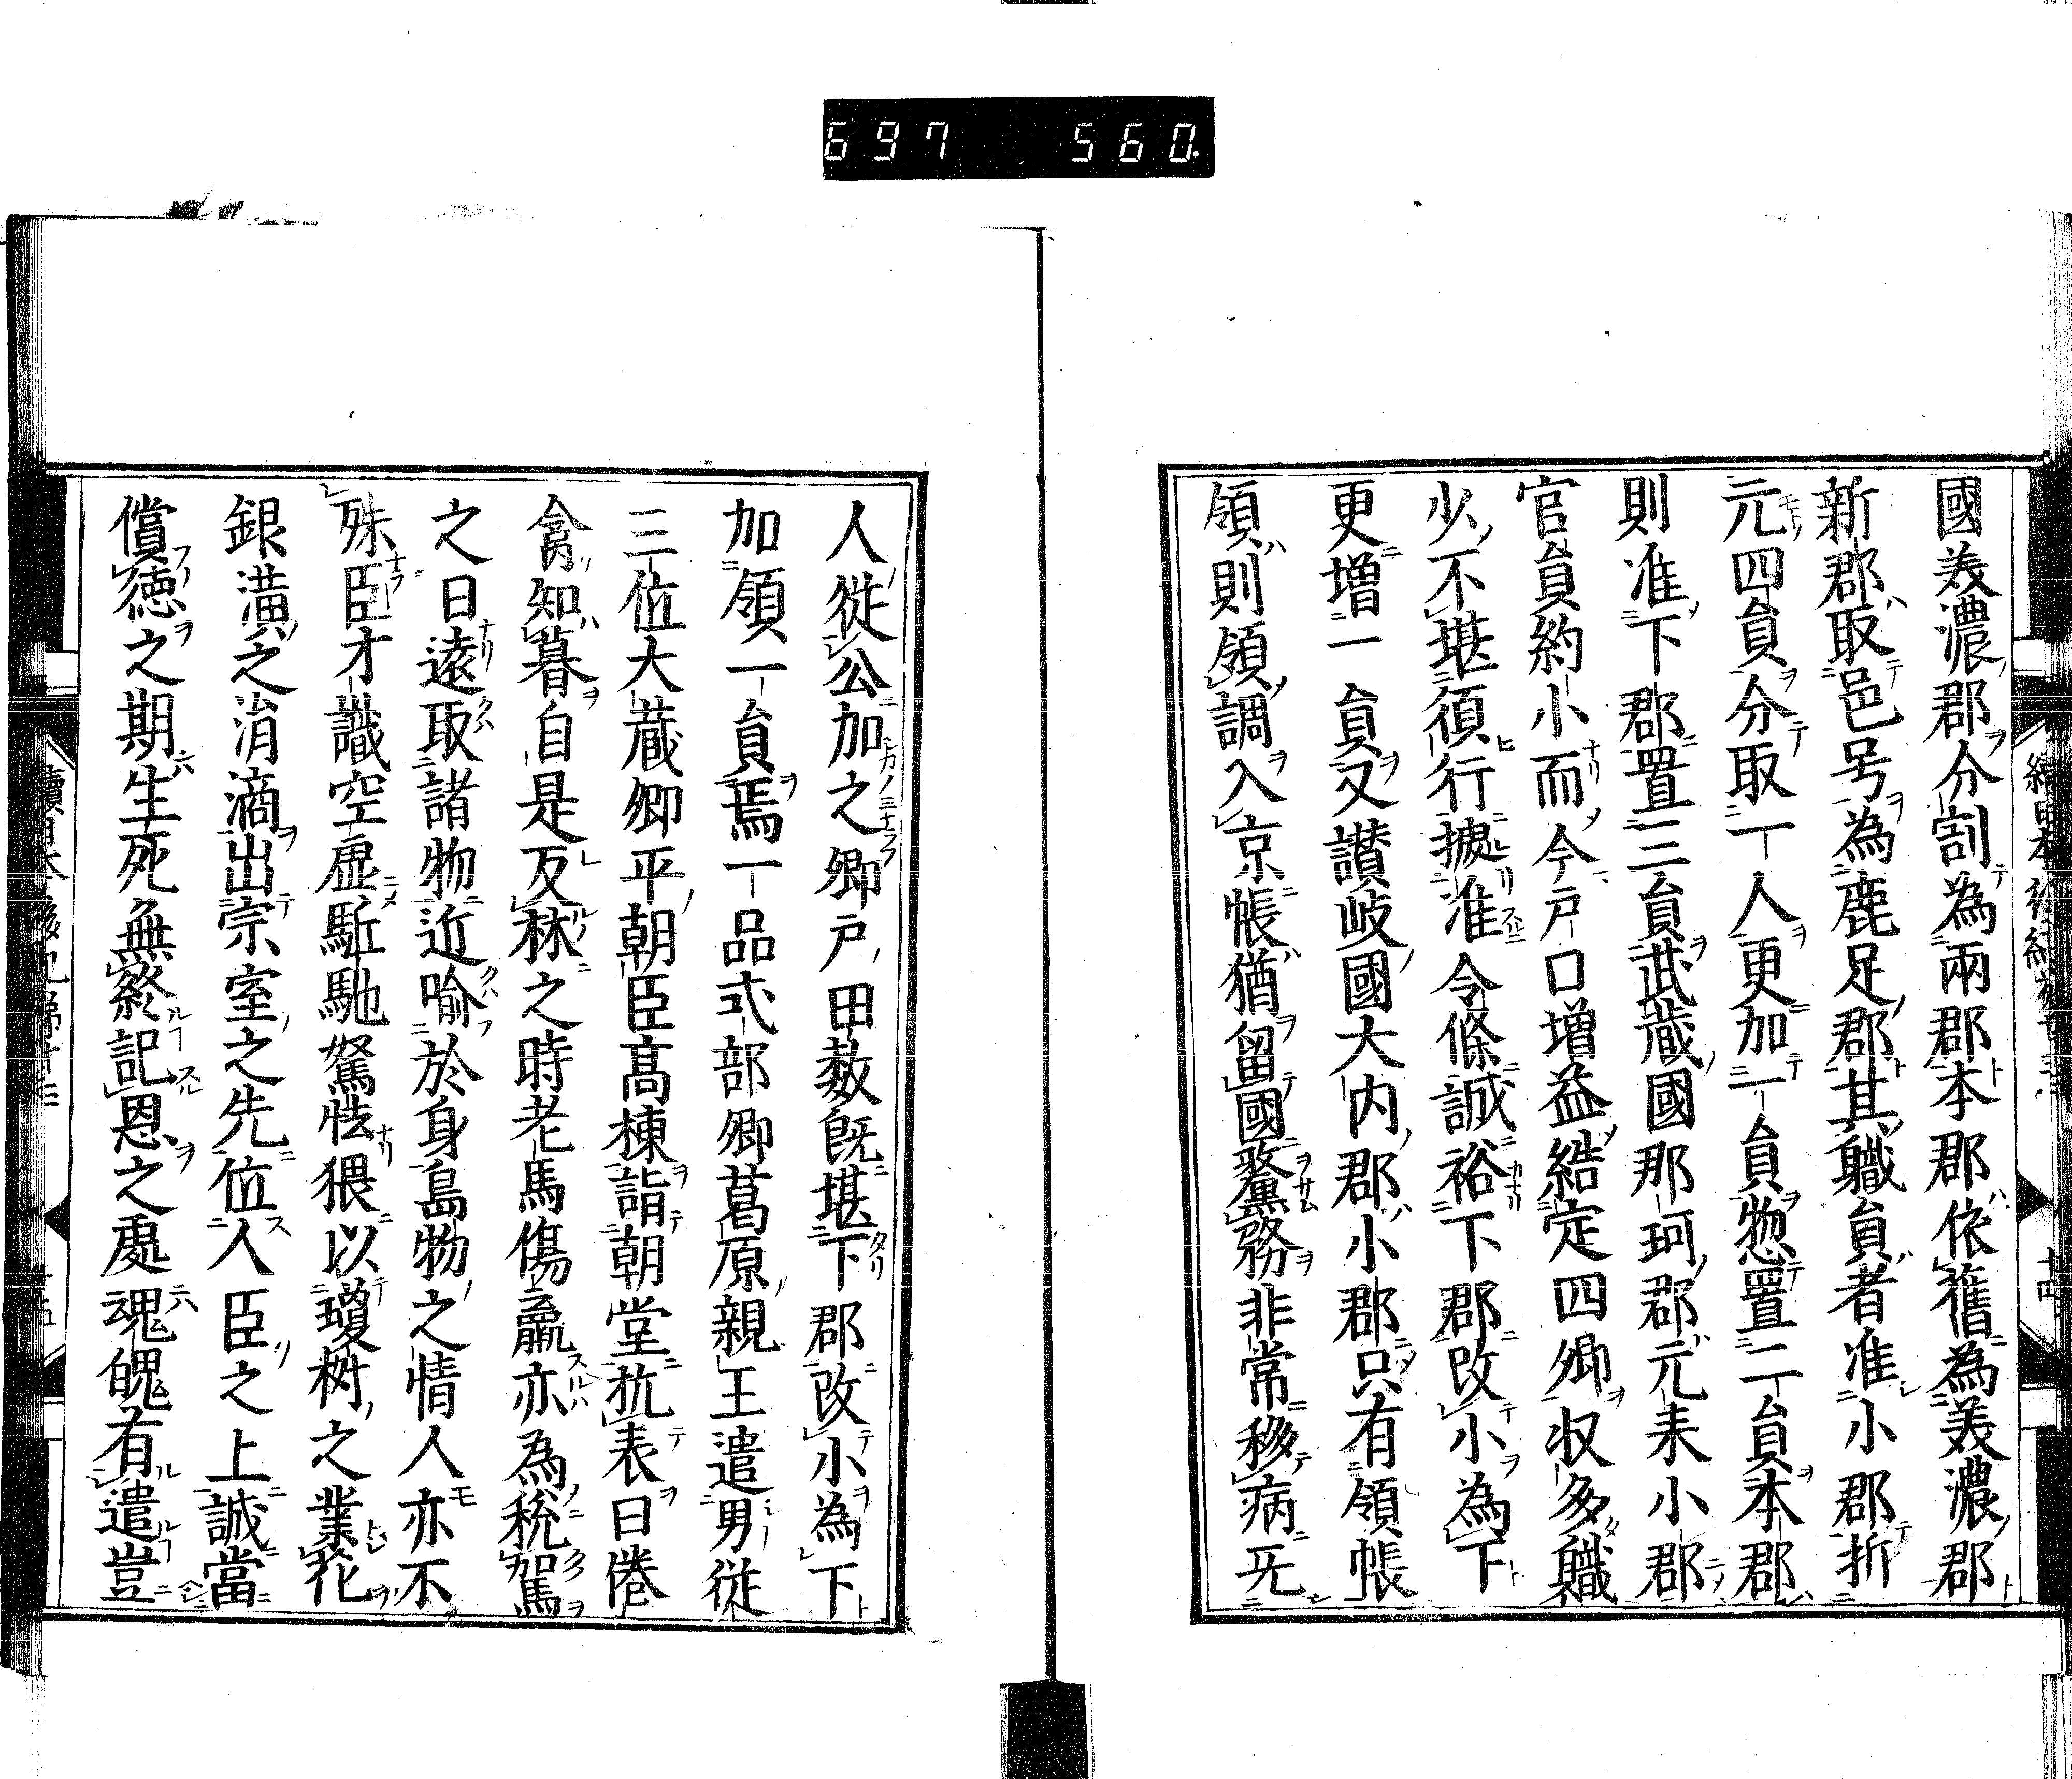 697 560.
國美濃郡分割為兩郡本郡依舊為美濃郡
新郡取邑号為鹿足郡其職員者准小郡折
元四員分取一人更加一員惣置二員本郡
則准下郡置三員武藏國那珂郡元来小郡
官員約小而今戸口增益結定四郷収多職
少不堪須行據准令條誠裕下郡改小為下
更增一員又讃岐國大内郡小郡只有領帳
領則領調入京帳猶留國釐務非常移病旡
人徙公加之郷戸田數既堪下郡改小為下
加領一員焉一品式部卿葛原親王遣男從
三位大藏卿平朝臣高棟詣朝堂抗表曰倦
禽知暮自是反林之時老馬傷羸亦為税駕
之日遠取諸物近喩於身島物之情人亦不
殊臣才識空虚駈馳駑怯猥以瓊樹之業花
銀潢之涓滴出宗室之先位人臣之上誠當
償徳之期生死無終記恩之處魂魄有遣豈